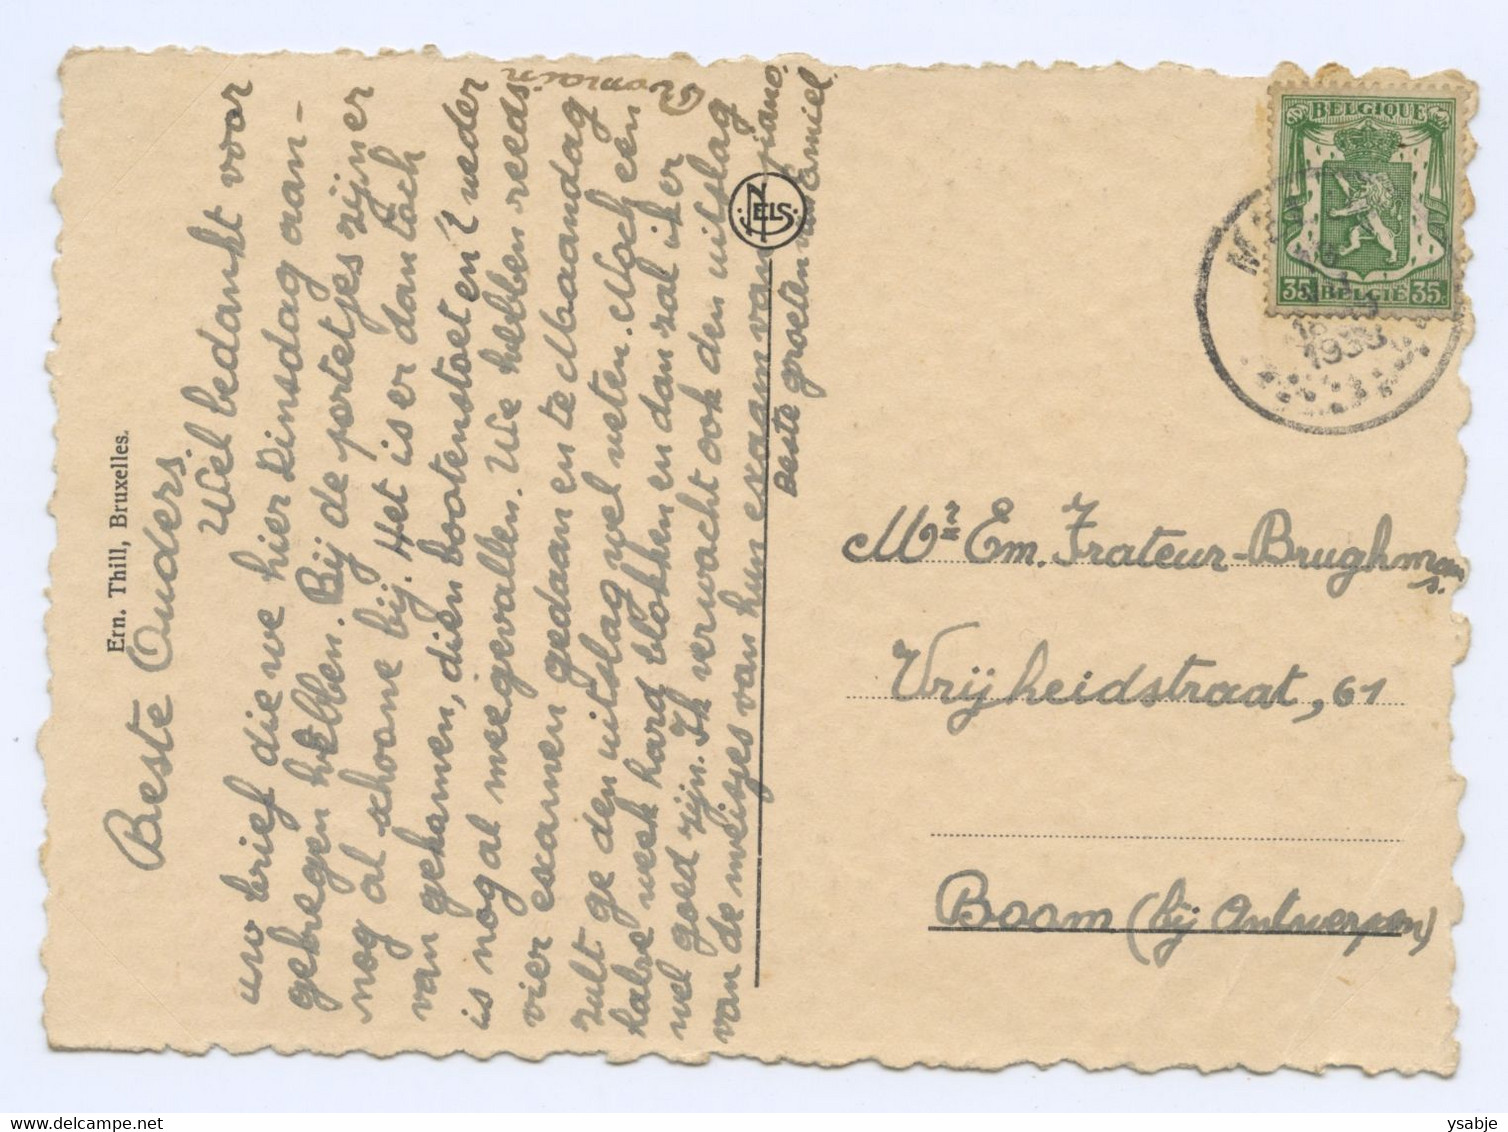 Ern. Thill, Bruxelles.
Beste Ouders.
Wel bedankt voor
uw brief die we hier Dinsdag aan-
gekregen hebben. Bij de portetjes zijn er
nog al schoone bij. Het is er dan toch
van gekomen, dien bootenstoet en 't weder
is nog al meegevallen. We hebben reeds
vier examen gedaan en te Maandag
zult ge den uitslag wel weten. Noch een
halve week hard blokken en dan zal ik er
wel goed zijn. Ik verwacht ook den uitslag
van de meisjes van hun examen van piano.
Beste groeten van Emiel.
Romain
NELS
BELGIQUE
35 BELGIË 35
1938
Mr Em. Frateur-Brughmans.
Vrijheidstraat, 61
Boom (bij Antwerpen)
ysabje